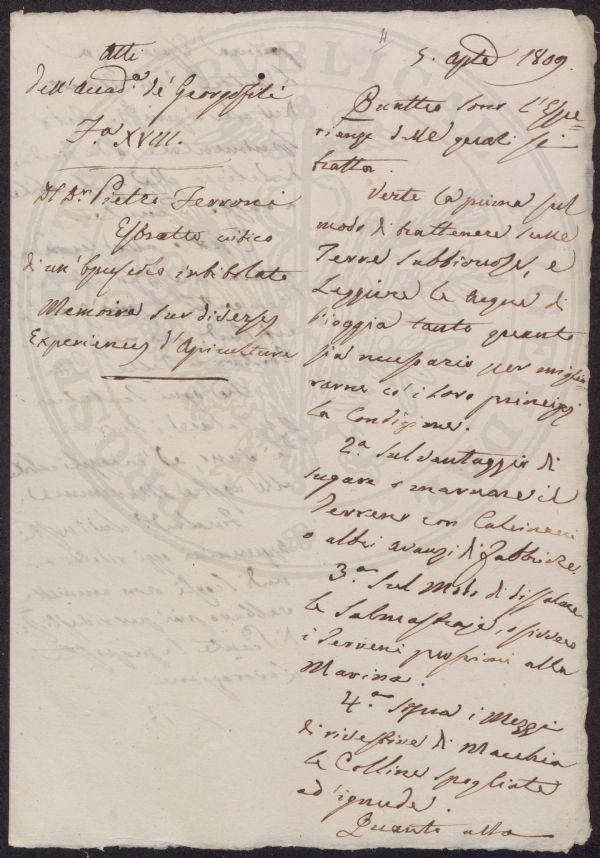 4
Atti
Dell'Accad.a de' Georgofili
T.o XVIII.
Il Dr. Pietro Ferroni
Estratto critico
di un' Opuscolo intitolato
Memoire sur diverses
Experiences d'Agriculture
5. Agto 1809.
Quattro sono l'Espe=
rienze delle quali si
tratta.
Verte la prima sul
modo di trattenere sulle
Terre Sabbionose, e
Leggiere le Acque di
Pioggia tanto quanto
sia necessario per miglio=
rarne co' i loro principj
la Condizione.
2.a Sul vantaggio di
sugare o marnare il
Terreno con Calcinacci
o altri avanzi di fabbriche.
3.a Sul Modo di dissalare
le Salmastraje, ossivvero
i Terreni prossimi alla
Marina.
4.a Sopra i Mezzi
di rivestire di Macchia
le Colline spogliate
ed ignude.
Quanto alla